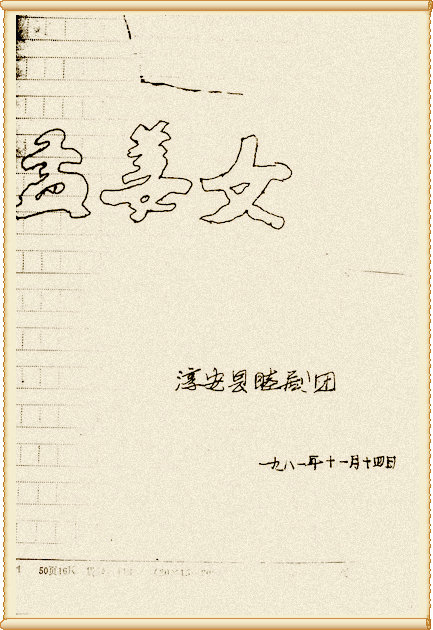 孟姜女
淳安县睦剧团
一九八一年十一月十四日
50页16K